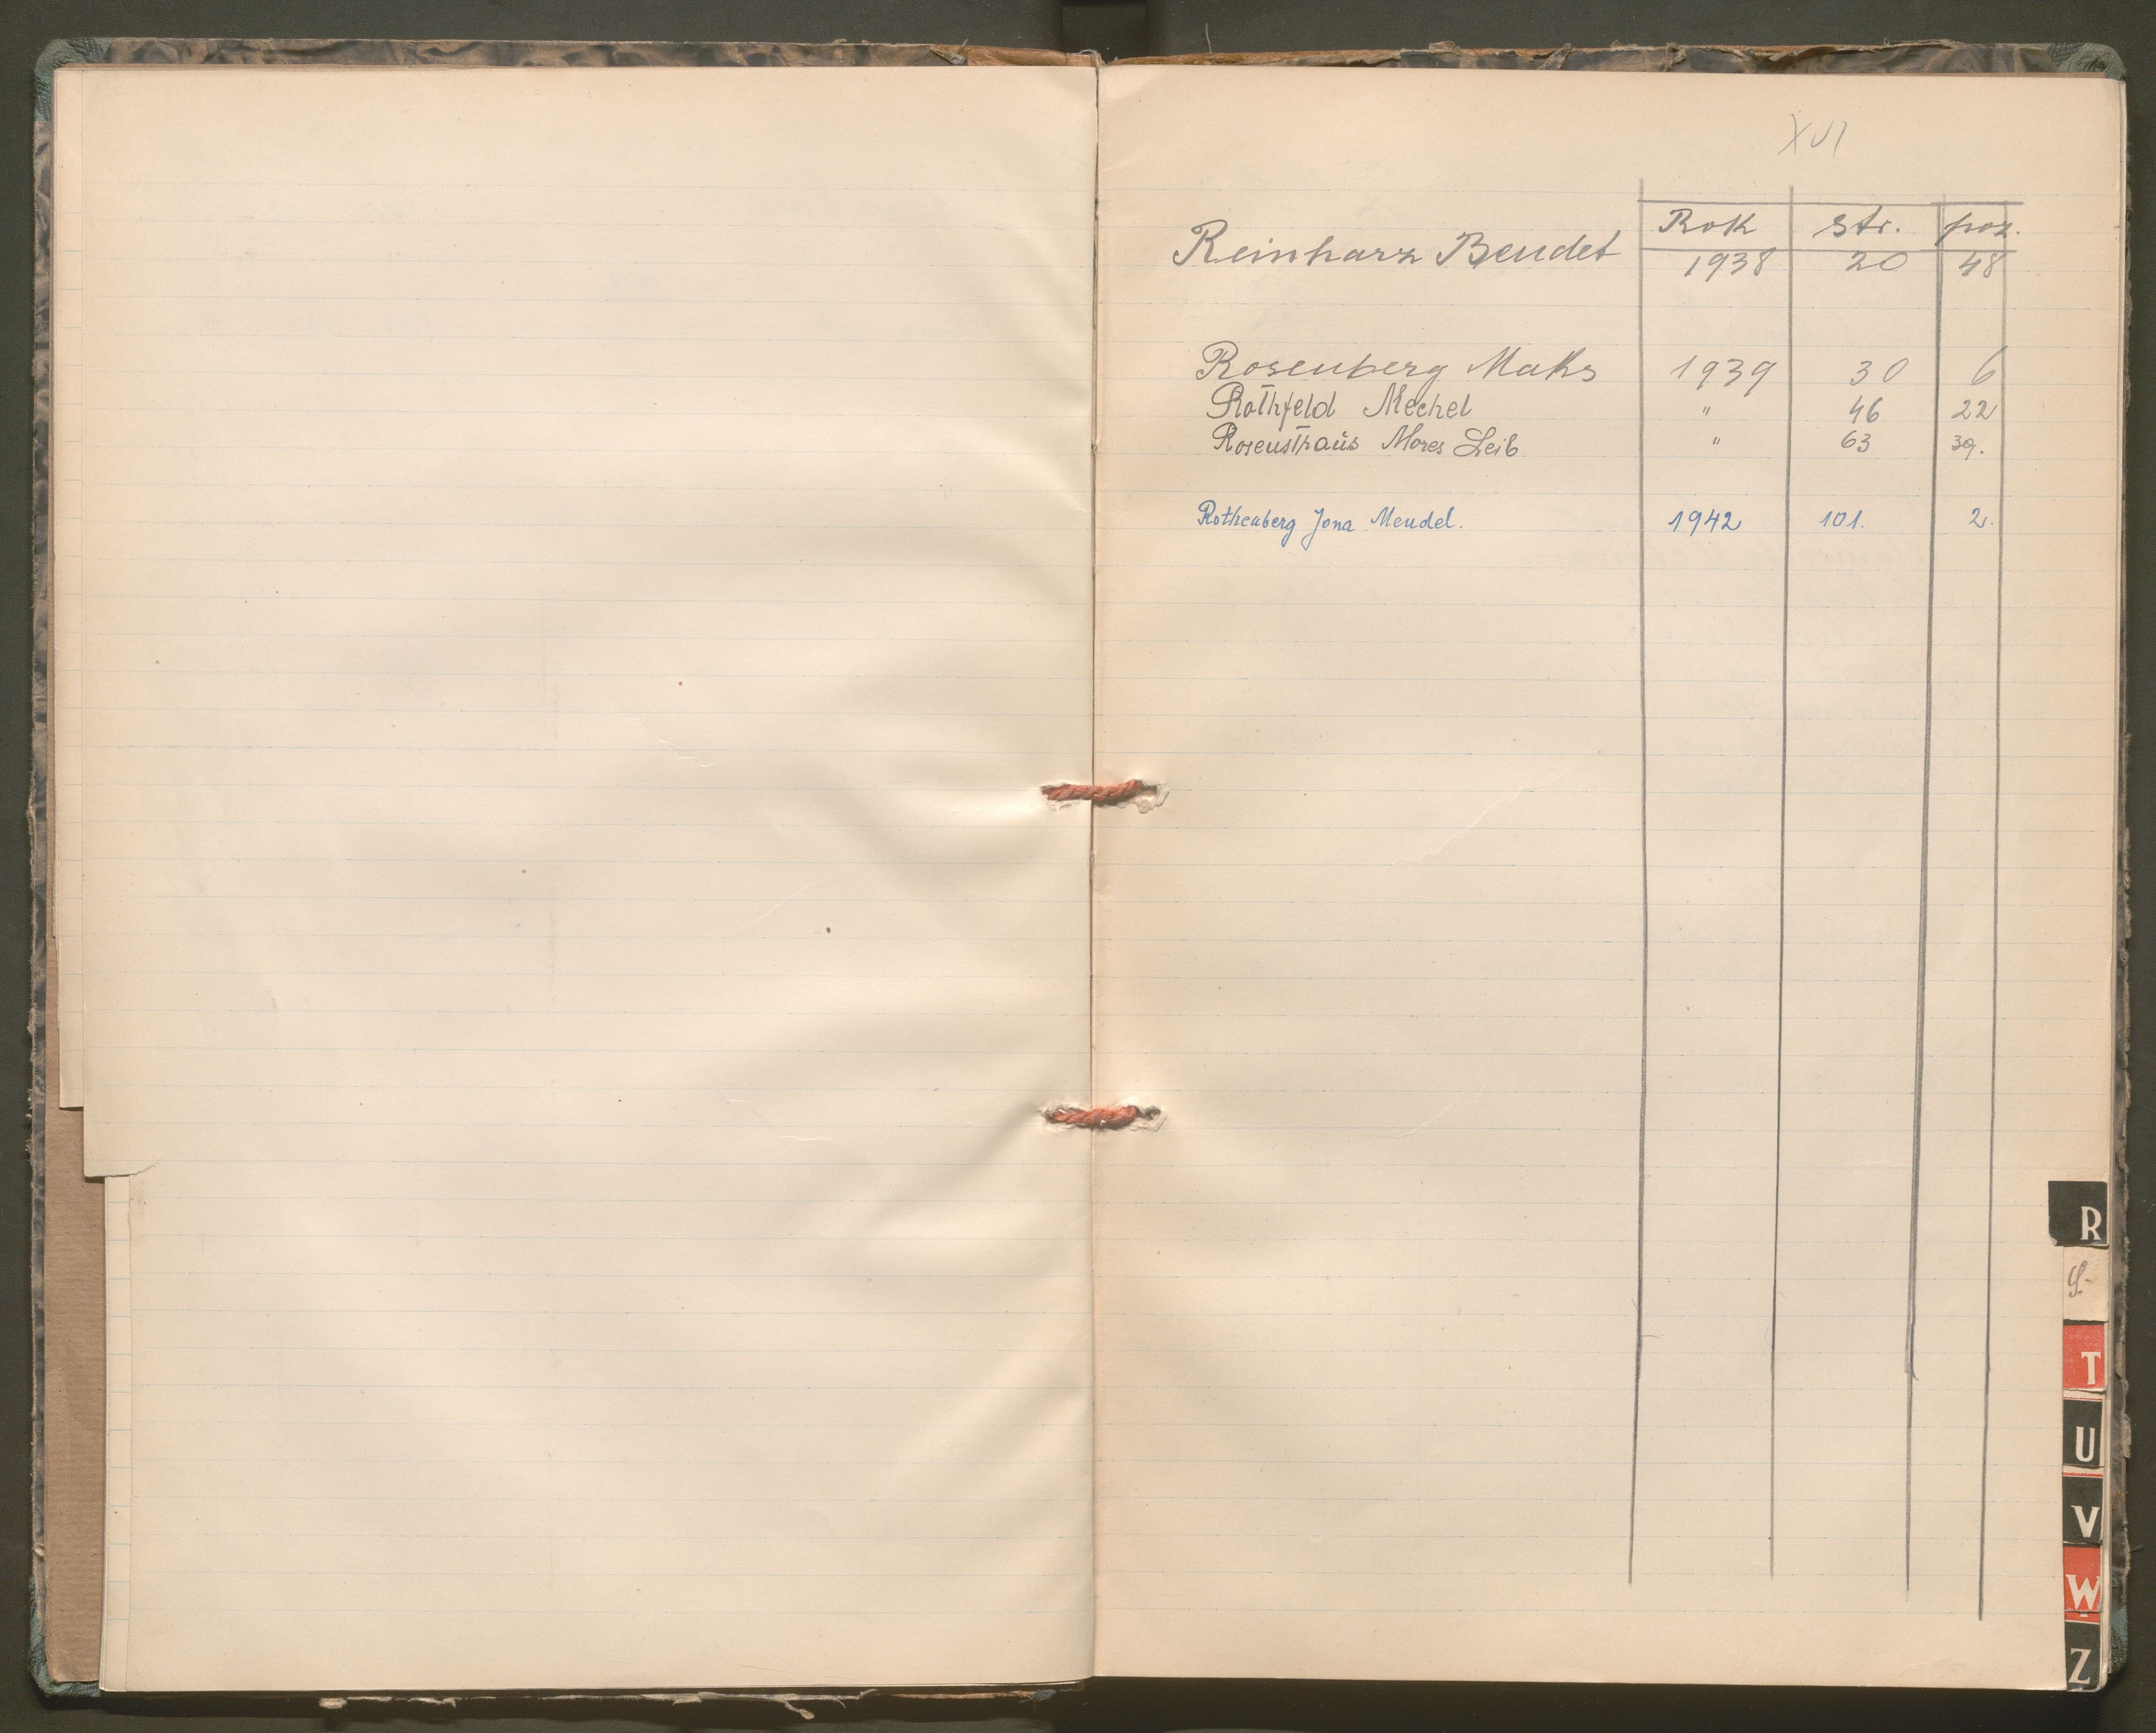 XVI
Rok str. poz.
Reinharz Bendet 1938 20 48
Rosenberg Maks 1939 30 6
Rothfeld Mechel " 46 22
Rosenstraus Mozes Leib " 63 39.
Rothenberg Jona Mendel. 1942 101. 2.
R
S
T
U
V
W
Z